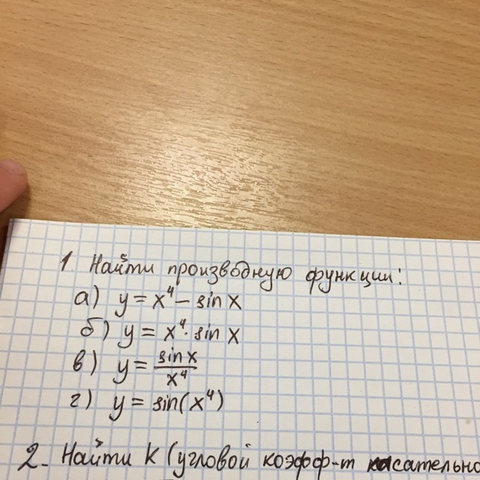 1 Найти производную функции:
а) y = x⁴ - sin x
б) y = x⁴ · sin x
в) y = sin x / x⁴
г) y = sin(x⁴)
2. Найти k (угловой коэфф-т касательно